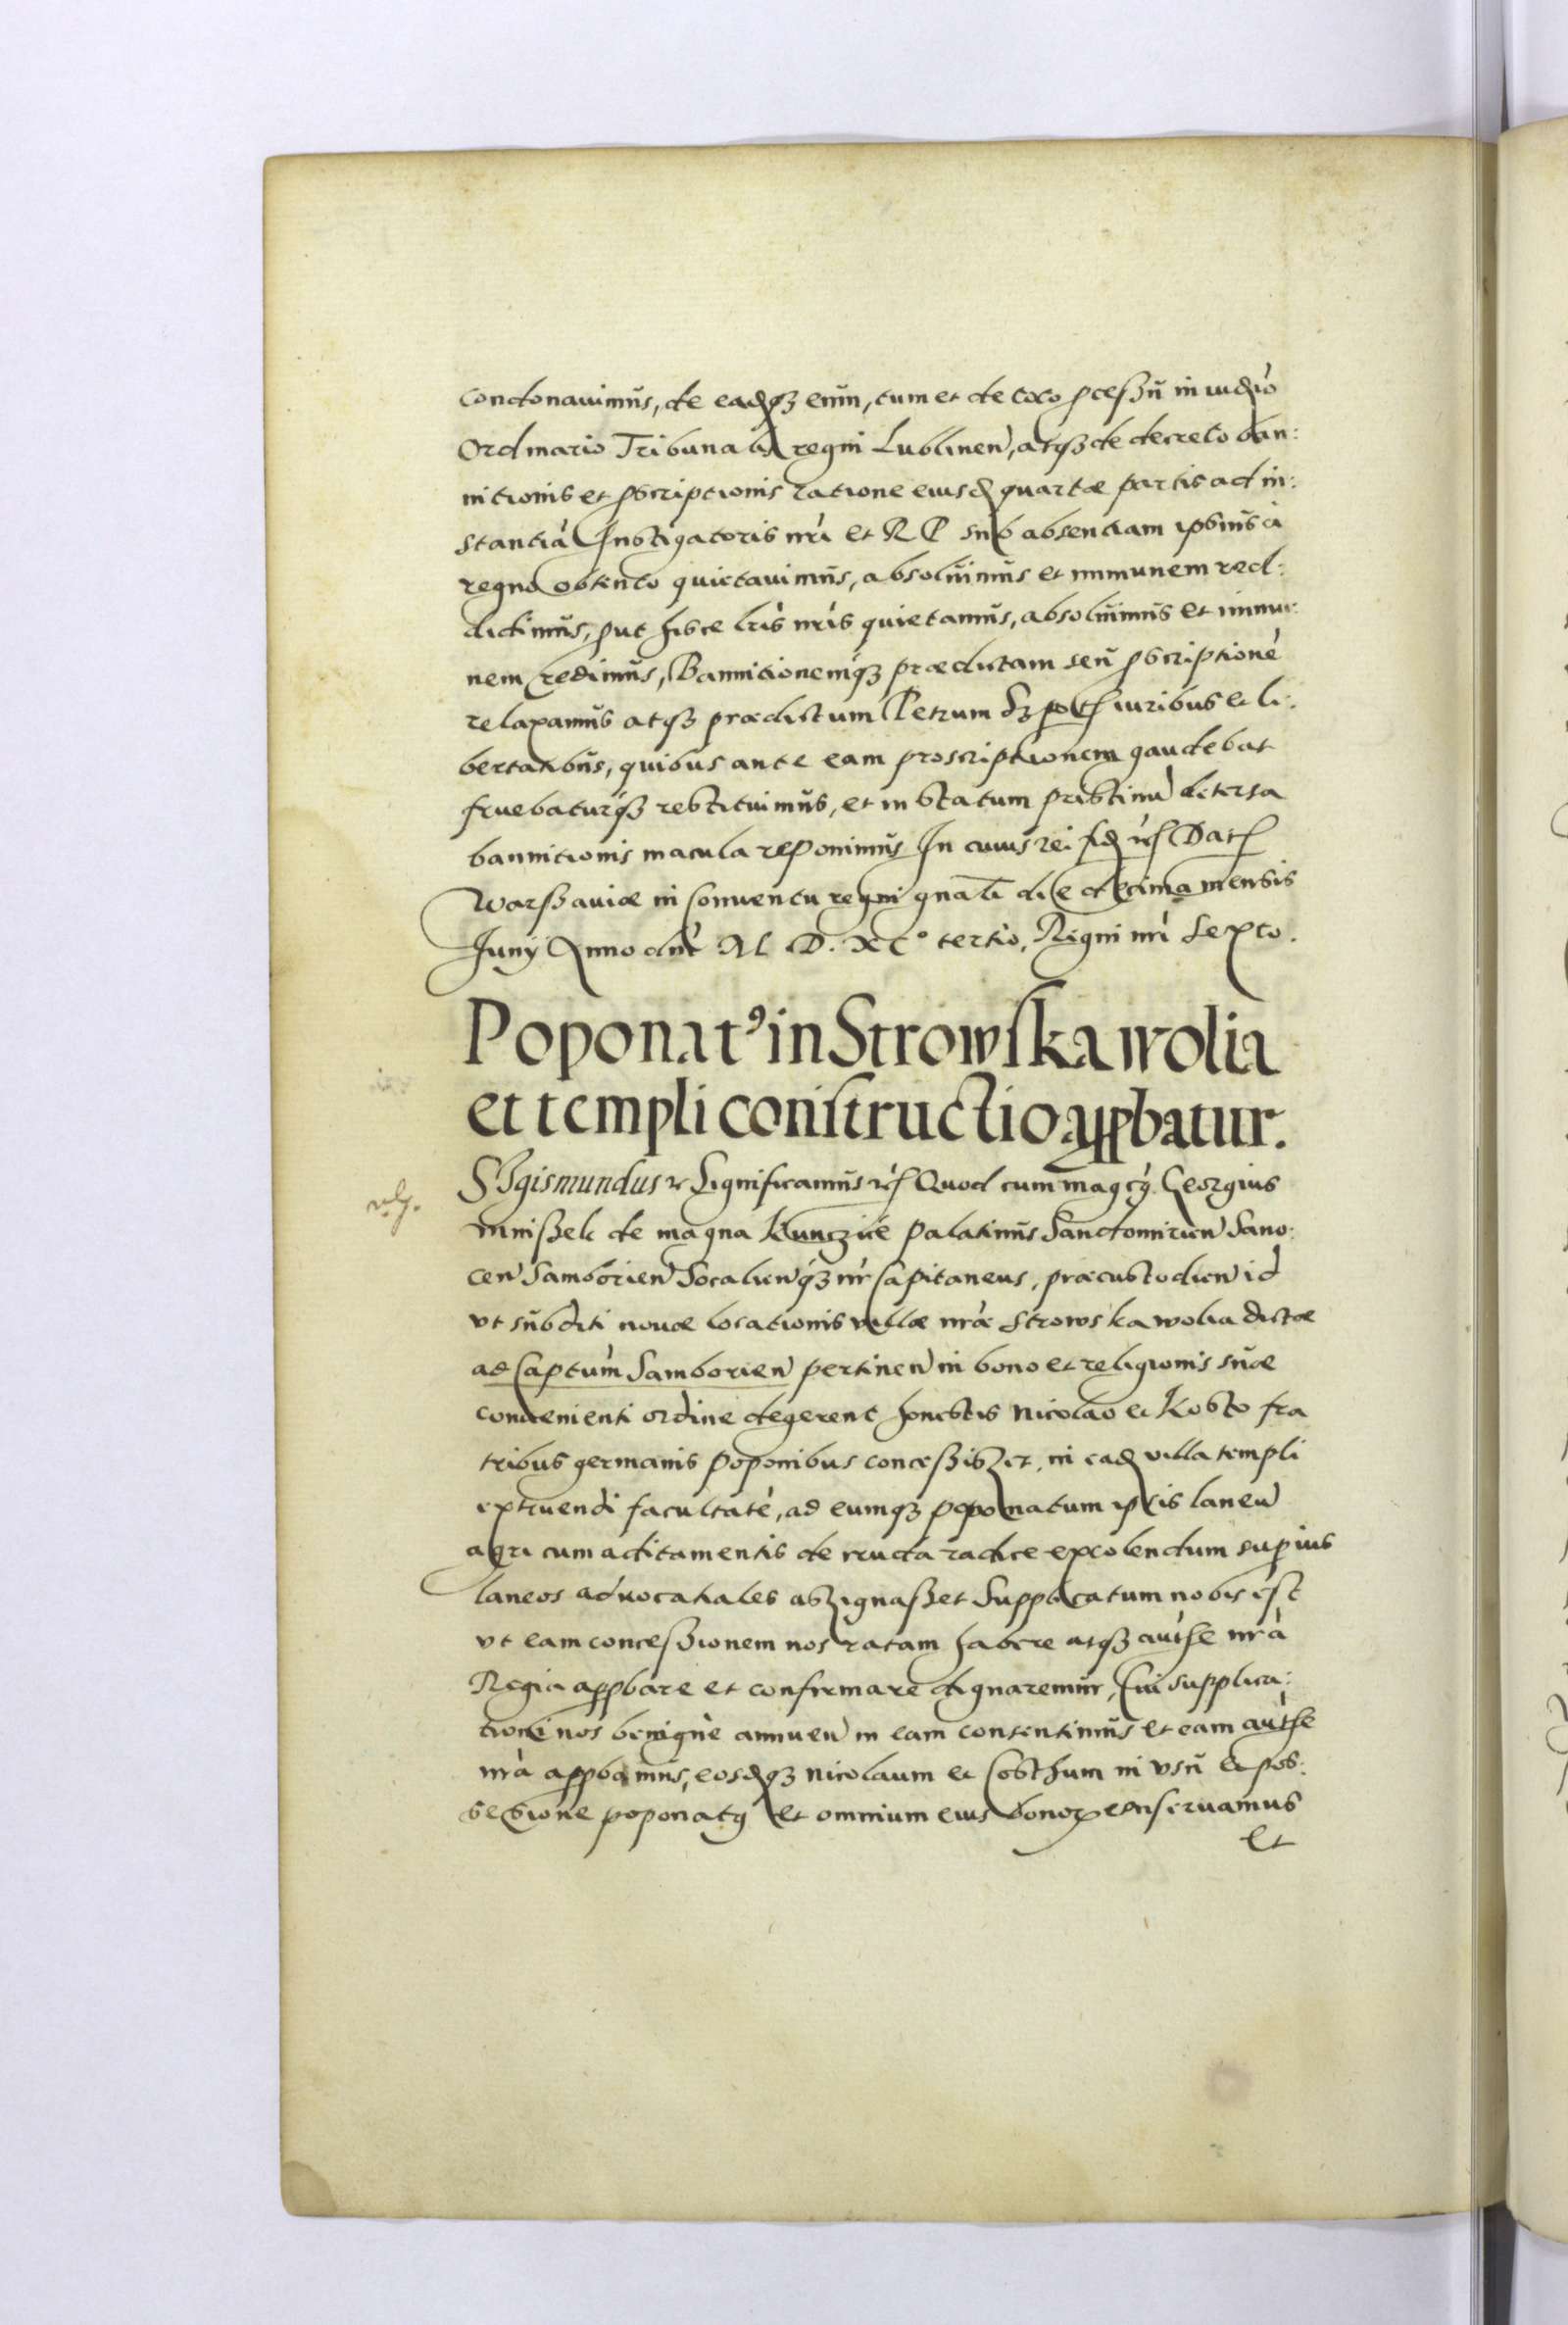 condonavimus, de eadqȝ eum, tum et de toto pcessu in iudio
Ordinario Tribunalis regni Lublinen, atqȝ de decreto ban:
nitionis et pscriptionis ratione eiusd quartæ partis ad in:
stantia Instigatoris nri et R P sub absentiam ipsius a
regno obtento quietavimus, absolvimus et immunem red:
didimus, put hisce lris nris quietamus, absolvimus et immu:
nem redimus, Bannitionemqȝ prædictam seu pscriptione
relaxamus atqȝ prædictum Petrum iuribus et li:
bertatibus, quibus ante eam proscriptionem gaudebat
fruebaturqȝ restituimus, et in statum pristinu detersa
bannitionis macula reponimus In cuius rei fid rc Dat
Warschaviæ in Conventu regni gnali die decima mensis
Junÿ Anno dni M. D. XC° tertio, Regni nri Sexto.
Poponat⁹ in Strowska wolia
et templi constructio appbatur.
SIgismundus rc Significamus rc Quod cum magcus Georgius
Mnischek de magna Kunczice Palatinus Sandomirien Sano:
cen Samborien Socalienqȝ nr Capitaneus, præcustodien id
vt subditi novæ locationis villæ nræ Strowska wolia dictæ
ad Captum Samborien pertinen in bono et religionis suæ
convenienti ordine degerent honestis Nicolao et Kosto fra
tribus germanis Poponibus concessisset, in ead villa templi
extruendi facultate, ad eumqȝ poponatum ipsis laneu
agri cum aditamentis de cruda radice excolendum supius
laneos advocatiales assignasset Supplicatum nobis est
vt eam concessionem nos ratam habere atqȝ authe nra
Regia appbare et confirmare dignaremur, Cui supplica:
tioni nos benigne annuen in eam consentimus et eam authe
nra appbamus, eosdqȝ Nicolaum et Costhum in usu et pos:
sessione poponatus et omnium eius bonoꝝ conservamus
et